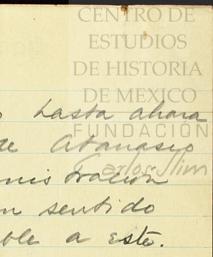 CENTRO DE
ESTUDIOS
DE HISTORIA
DE MEXICO
FUNDACIÓN
Carlos Slim
hasta ahora
de Atanasio
nistración
n sentido
ble a este.